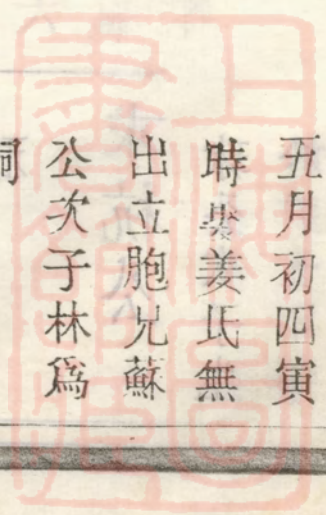 五月初四寅
時娶姜氏無
出立胞兄蘇
公次子林爲
嗣